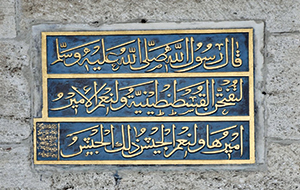 قال رسول الله صلى الله عليه وسلم
لتفتحن القسطنطينية ولنعم الأمير
أميرها ولنعم الجيش ذلك الجيش